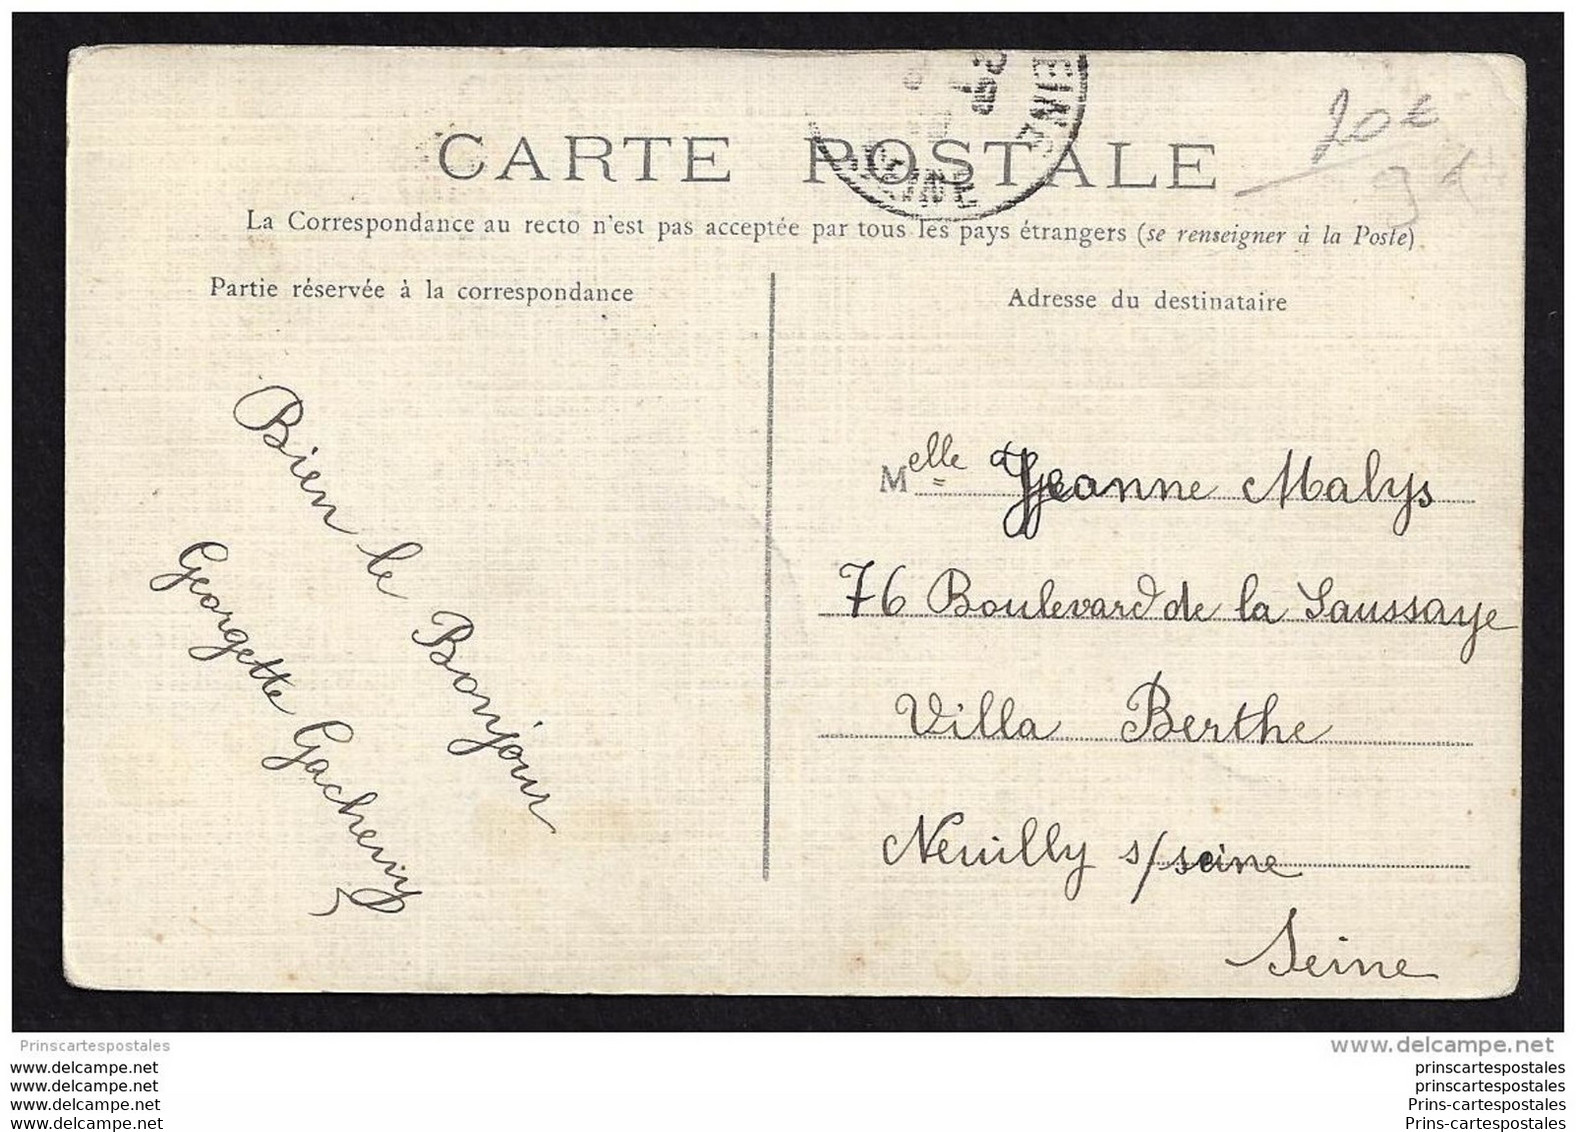 CARTE POSTALE
La Correspondance au recto n'est pas acceptée par tous les pays étrangers (se renseigner à la Poste)
Partie réservée à la correspondance
Adresse du destinataire
20€
Bien le Bonjour
Georgette Gacheny
Melle Jeanne Malys
76 Boulevard de la Saussaye
Villa Berthe
Neuilly s/seine
Seine
Prinscartespostales
www.delcampe.net
www.delcampe.net
www.delcampe.net
www.delcampe.net
www.delcampe.net
prinscartespostales
prinscartespostales
Prins-cartespostales
Prins-cartespostales